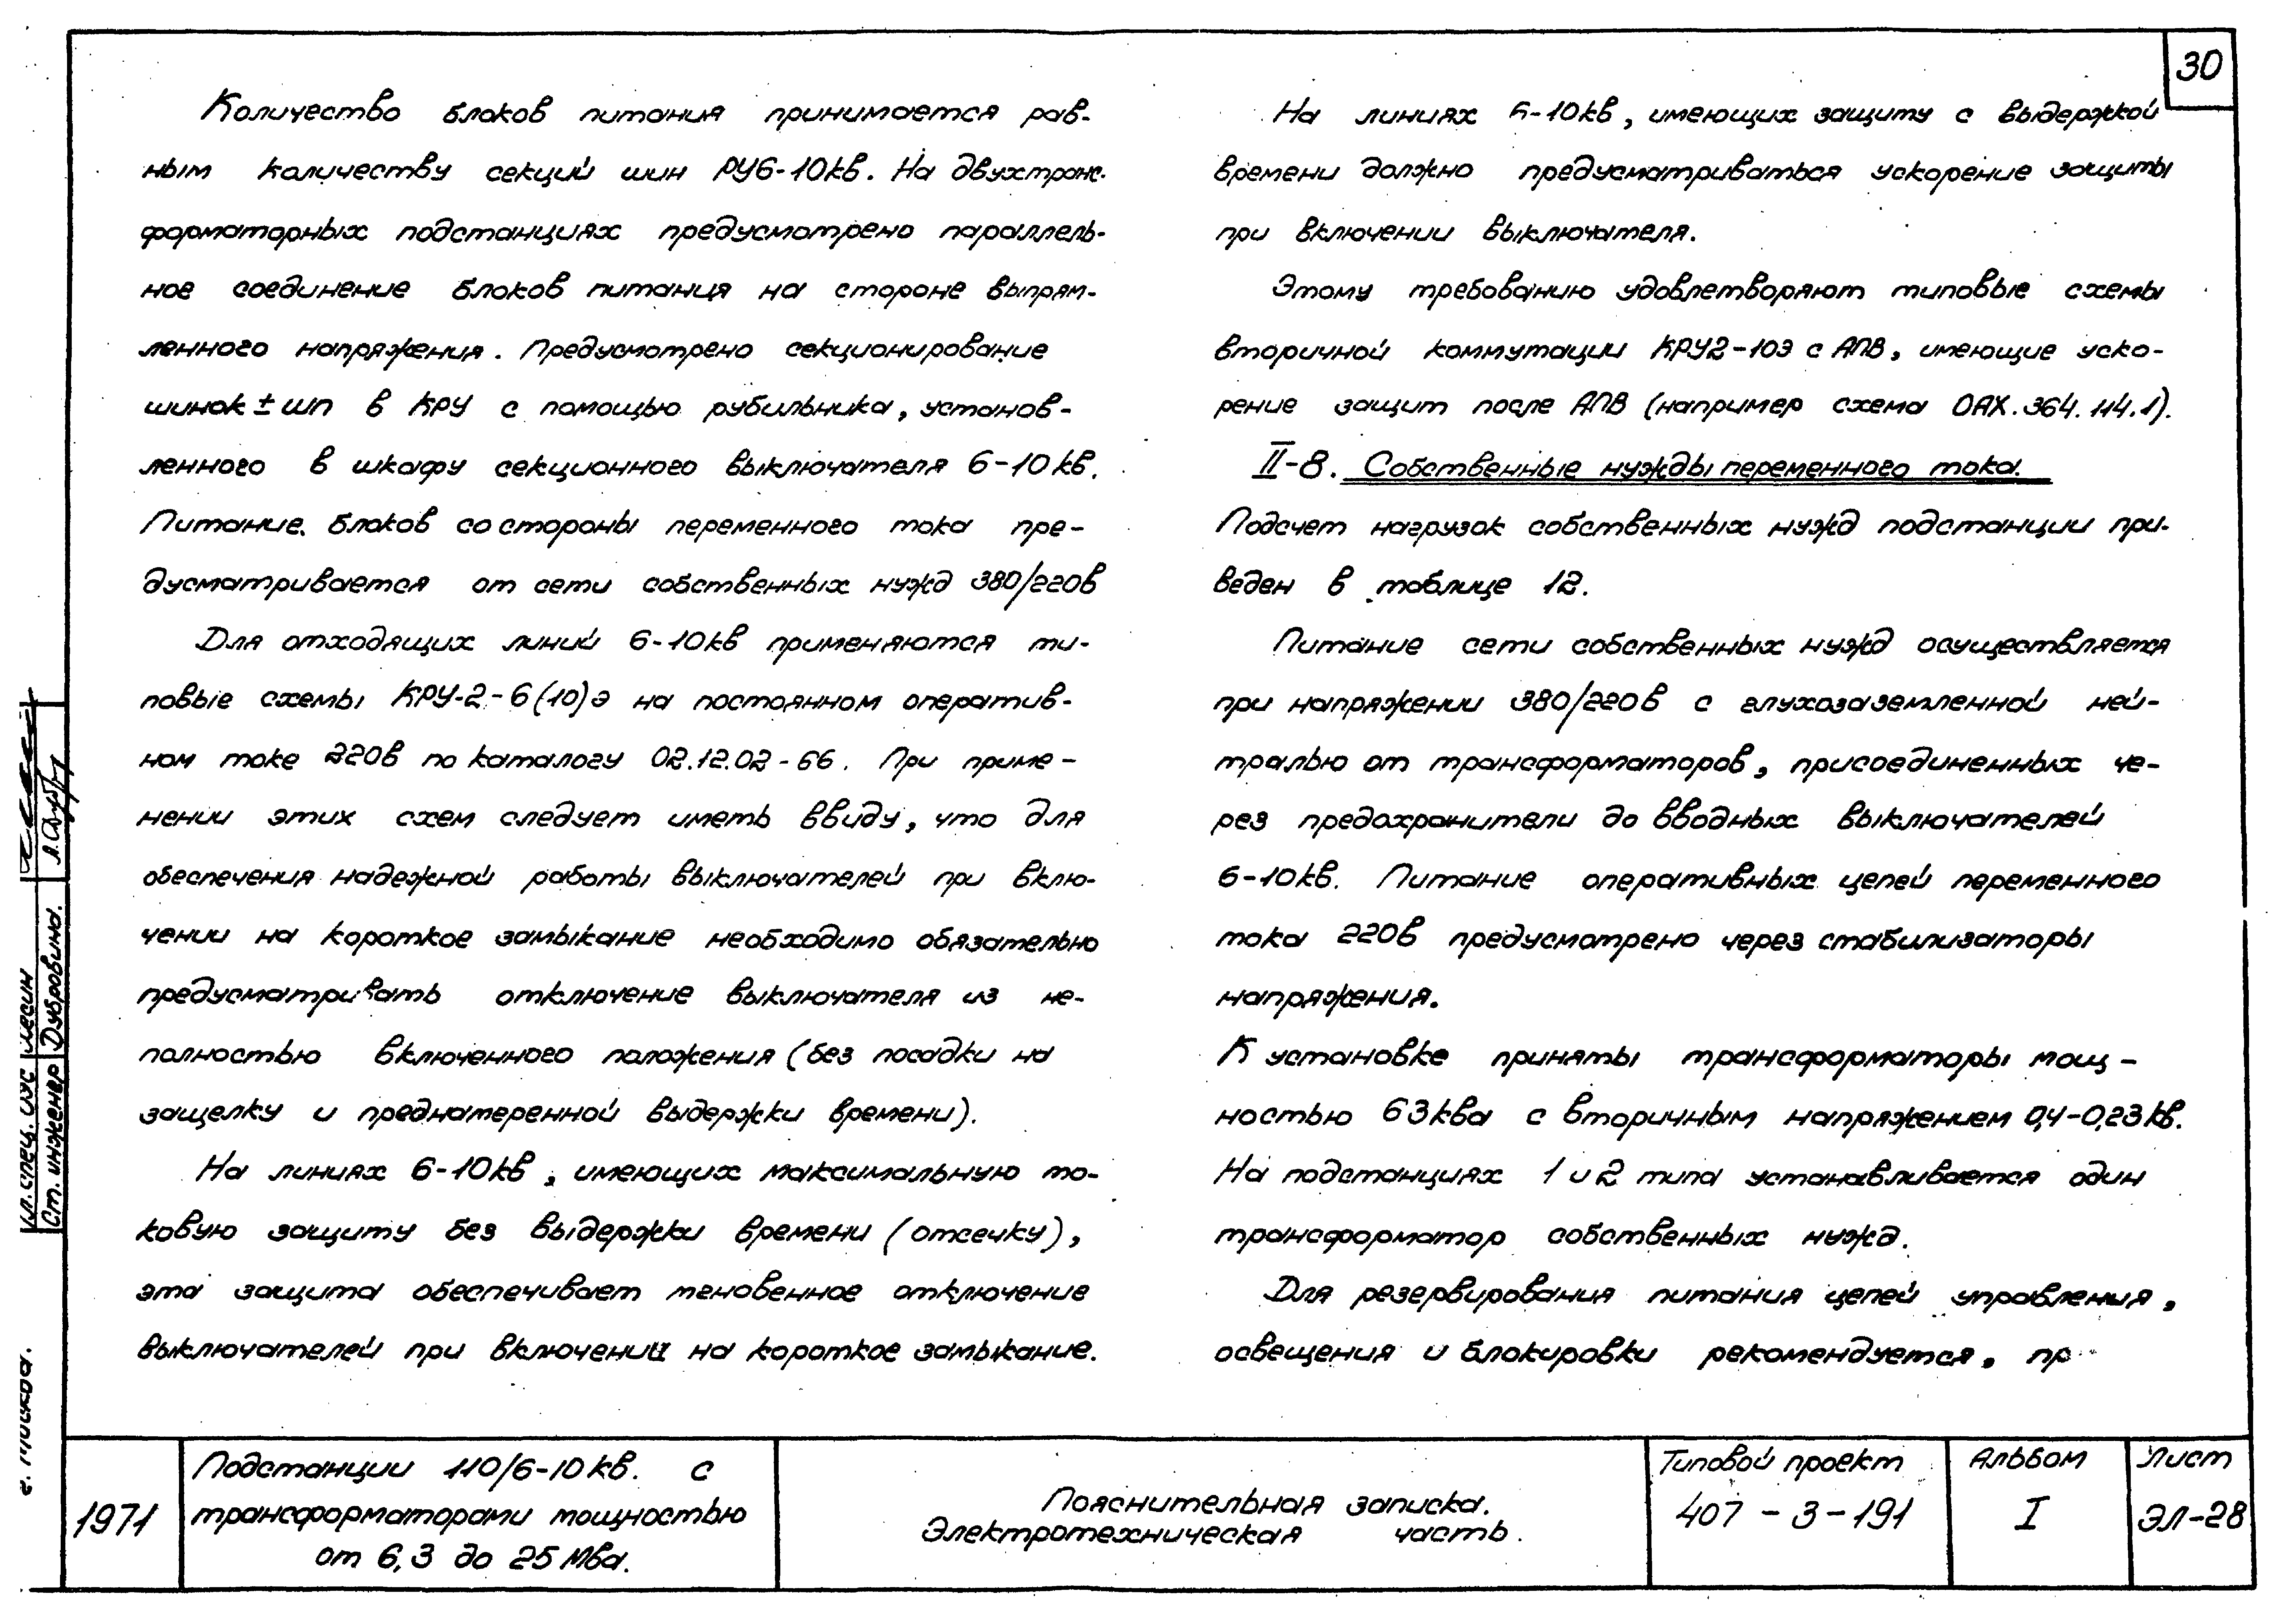 30
Количество блоков питания принимается рав-
ным количеству секций шин РУ6-10кв. На двухтранс-
форматорных подстанциях предусмотрено параллель-
ное соединение блоков питания на стороне выпрям-
ленного напряжения. Предусмотрено секционирование
шинок ± шп в КРУ с помощью рубильника, установ-
ленного в шкафу секционного выключателя 6-10кв.
Питание блоков со стороны переменного тока пре-
дусматривается от сети собственных нужд 380/220в
Для отходящих линий 6-10кв применяются ти-
повые схемы КРУ-2-6(10)э на постоянном оператив-
ном токе 220в по каталогу 02.12.02-66. При приме-
нении этих схем следует иметь ввиду, что для
обеспечения надежной работы выключателей при вклю-
чении на короткое замыкание необходимо обязательно
предусматривать отключение выключателя из не-
полностью включенного положения (без посадки на
защелку и преднамеренной выдержки времени).
На линиях 6-10кв, имеющих максимальную то-
ковую защиту без выдержки времени (отсечку),
эта защита обеспечивает мгновенное отключение
выключателей при включении на короткое замыкание.
На линиях 6-10кв, имеющих защиту с выдержкой
времени должно предусматриваться ускорение защиты
при включении выключателя.
Этому требованию удовлетворяют типовые схемы
вторичной коммутации КРУ2-10Э с АПВ, имеющие уско-
рение защит после АПВ (например схема ОАХ.364.114.1).
II-8. Собственные нужды переменного тока.
Подсчет нагрузок собственных нужд подстанции при-
веден в таблице 12.
Питание сети собственных нужд осуществляется
при напряжении 380/220в с глухозаземленной ней-
тралью от трансформаторов, присоединенных че-
рез предохранители до вводных выключателей
6-10кв. Питание оперативных цепей переменного
тока 220в предусмотрено через стабилизаторы
напряжения.
К установке приняты трансформаторы мощ-
ностью 63ква с вторичным напряжением 0,4-0,23кв.
На подстанциях 1 и 2 типа устанавливается один
трансформатор собственных нужд.
Для резервирования питания цепей управления,
освещения и блокировки рекомендуется, пр
Гл.спец. ОЭС Лесин
Ст. инженер Дубровина.
г. Москва.
1971
Подстанции 110/6-10кв. с
трансформаторами мощностью
от 6,3 до 25 Мва.
Пояснительная записка.
Электротехническая часть.
Типовой проект
407-3-191
Альбом
I
Лист
ЭЛ-28